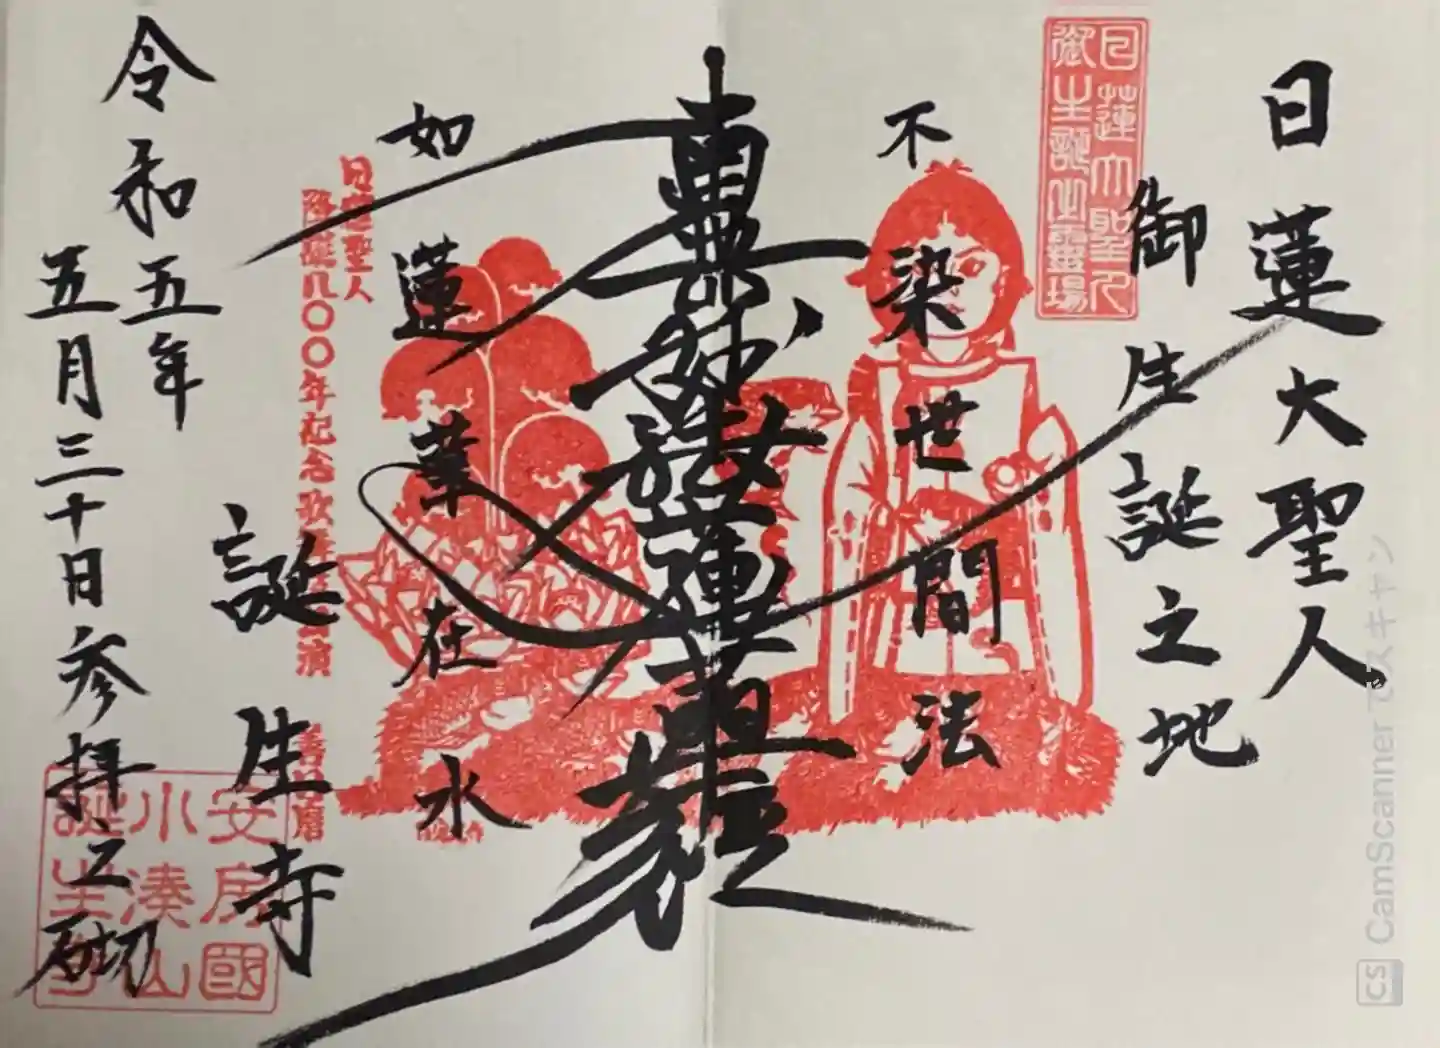 日蓮大聖人
御生誕之地
日蓮大聖人
御生誕之霊場
不染世間法
南無妙法蓮華経
如蓮華在水
日蓮聖人
降誕八〇〇年記念歌舞
演
誕生寺
令和五年
五月三十日参拝之砌
安房國
小湊山
誕生寺
CS CamScanner でスキャン